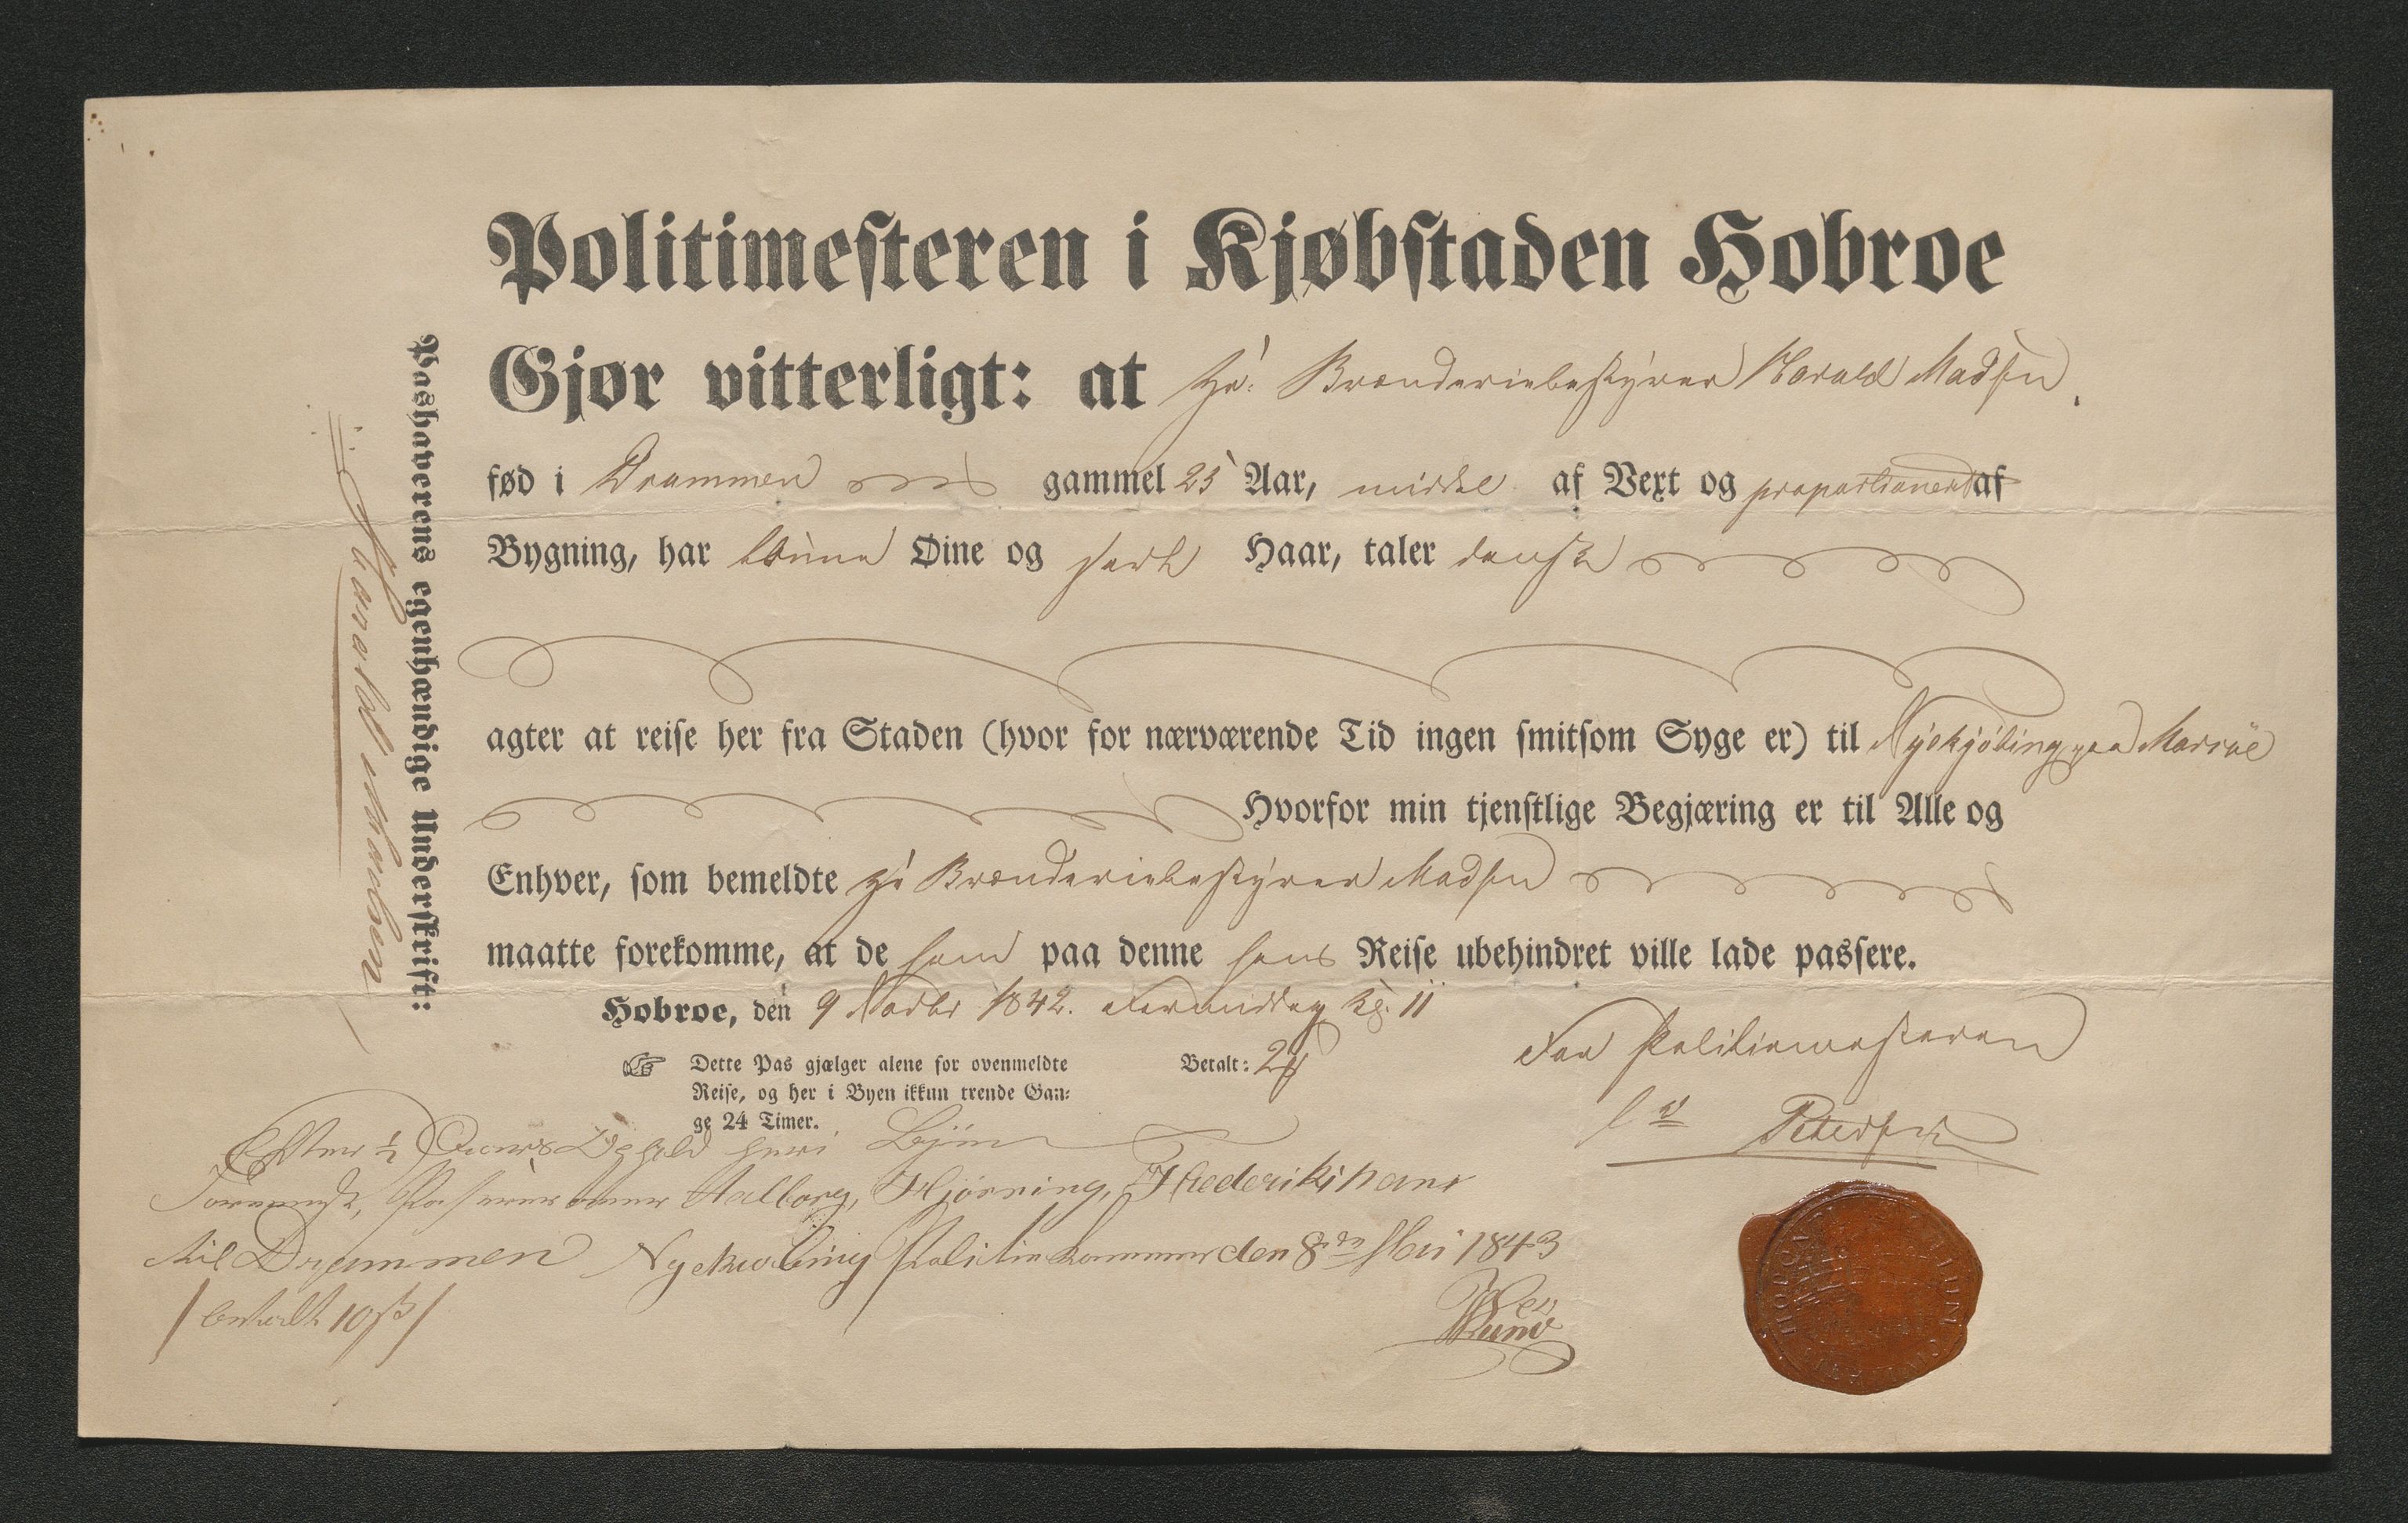 Politimesteren i Kjøbstaden Hobroe
Gjør vitterligt: at Hr: Brænderiebestyrer Harald Madsen.
fød i Drammen gammel 25 Aar, middel af Vext og proportioneret af
Bygning, har brune Øine og sort Haar, taler dansk
agter at reise her fra Staden (hvor for nærværende Tid ingen smitsom Syge er) til Nyekjöbing paa Morsöe
Hvorfor min tjenstlige Begjæring er til Alle og
Enhver, som bemeldte Hr Brænderiebestyrer Madsen
maatte forekomme, at de ham paa denne hans Reise ubehindret ville lade passere.
Hobroe, den 9 Novbr 1842. Formiddag Kl. 11
Dette Pas gjælger alene for ovenmeldte
Reise, og her i Byen ikkun trende Gan-
ge 24 Timer.
Betalt:
For Politiemesteren
Petersen
Pashaverens egenhændige Underskrift:
Harald Madsen
Efter 1/2 Aars Ophold her i Byen
Passerer Aalborg, Hjörring, Frederikshavn
til Drammen Nyekiøbing Politiekammer den 8de Mai 1843
/ betalt 10 ß /
HOBROE